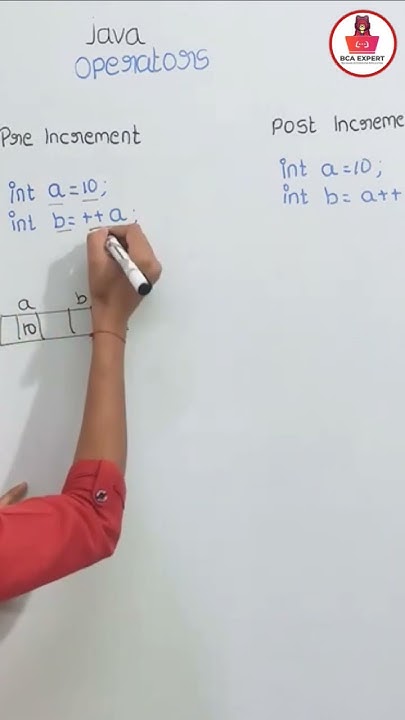 Java
Operators
BCA EXPERT
Pre Increment
int a = 10;
int b = ++ a;
a b
10
Post Increme
int a = 10;
int b = a++